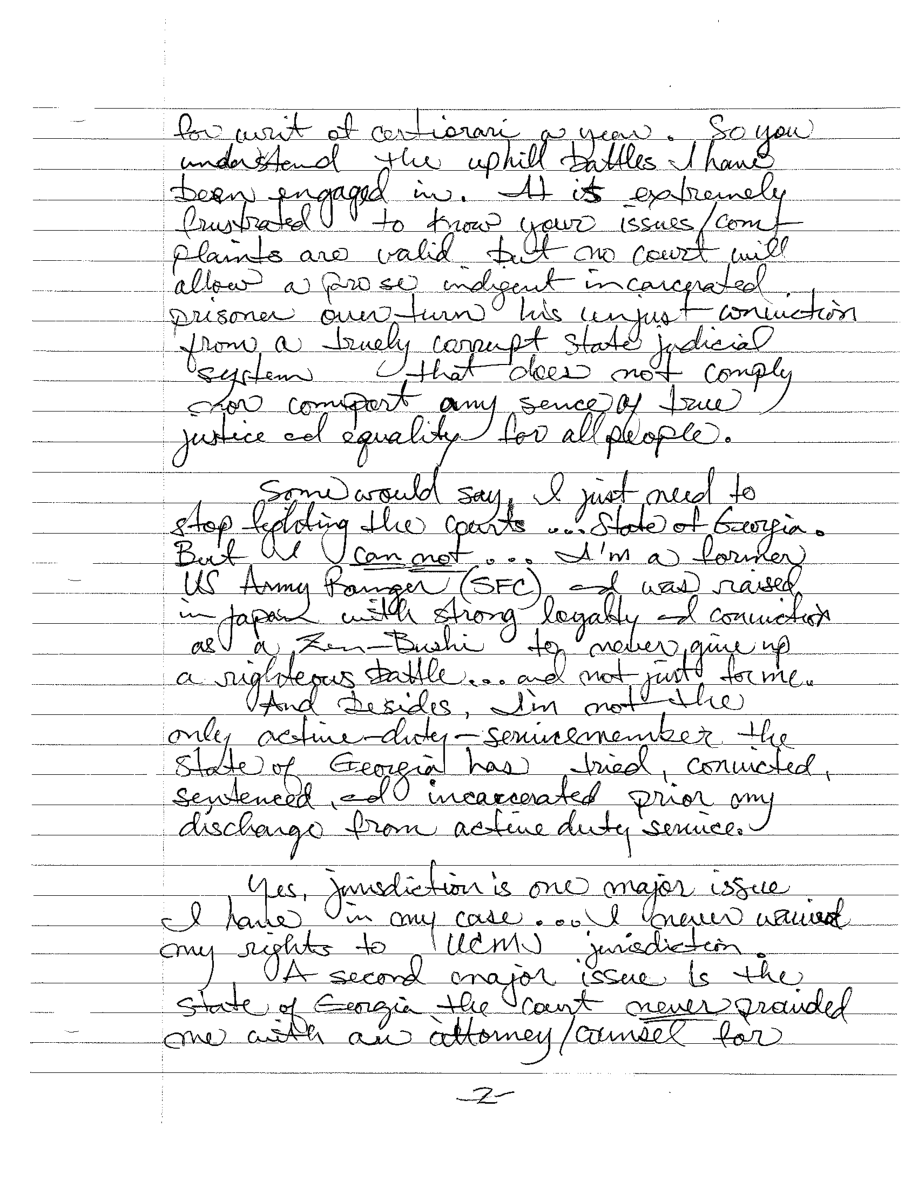 for writ of certiorari a year. So you
understand the uphill battles I have
been engaged in. It is extremely
frustrated to know your issues/com-
plaints are valid but no court will
allow a pro se indigent incarcerated
prisoner over-turn his unjust conviction
from a truely corrupt State judicial
system that does not comply
nor comport any sence of true
justice and equality for all people.
Some would say, I just need to
stop fighting the courts ... State of Georgia.
But I can not ... I'm a former
US Army Ranger (SFC) and was raised
in Japan with strong loyalty and conviction
as a Zen-Bushi to never give up
a righteous battle... and not just for me.
And besides, I'm not the
only active-duty-servicemember the
State of Georgia has tried, convicted,
sentenced, and incarcerated prior my
discharge from active duty service.
Yes, jurisdiction is one major issue
I have in my case ... I never waived
my rights to UCMJ jurisdiction.
A second major issue is the
State of Georgia the court never provided
me with an attorney/counsel for
-2-